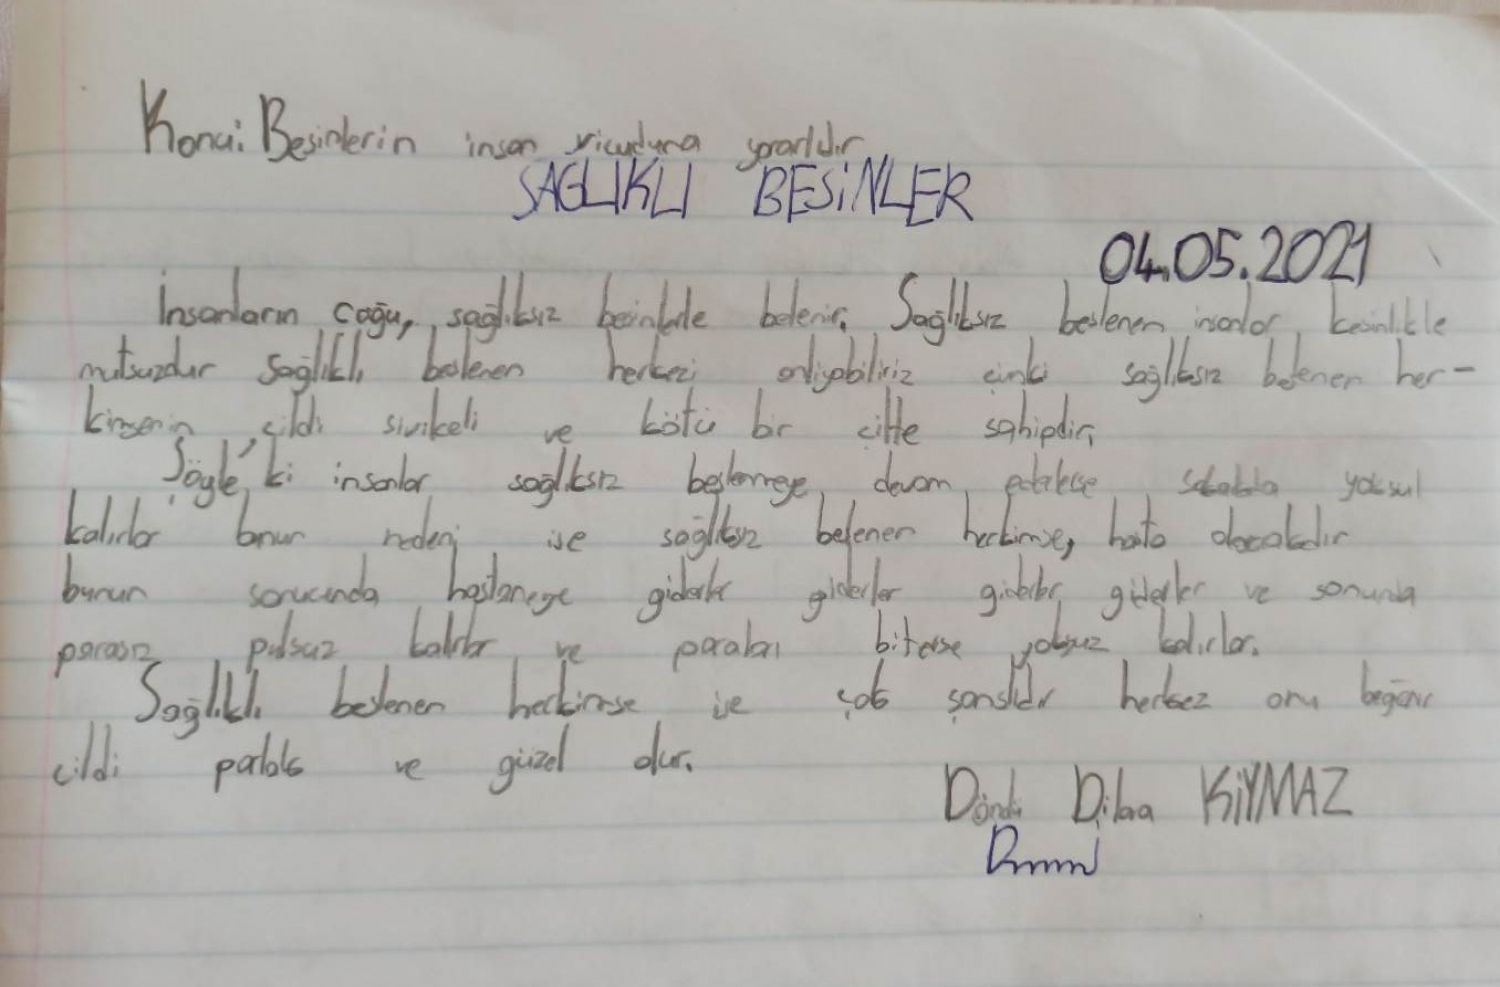 Konu: Besinlerin insan vicuduna yararlıdır
SAĞLIKLI BESİNLER
04.05.2021
İnsanların çoğu, sağlıksız besinlerle belenir. Sağlıksız beslenen insanlar kesinlikle
mutsuzdur sağlıklı beslenen herkezi anlıyabiliriz çinki sağlıksız belenen her-
kimsenin cildi sivilceli ve kötü bir citte sahipdir,
Şöyle'ki insanlar sağlıksız beslenmeye devam ederlerse yoksul
kalırlar bnun nedeni ise sağlıksız belenen herkimse, hasta olacakdır
bunun sonucunda hastaneye giderler giderler giderler giderler ve sonunda
parasız pulsuz kalırlar ve paraları biterse yoksuz kalırlar.
Sağlıklı beslenen herkimse ise çok şanslıdır herkez onu beğenir
cildi parlak ve güzel olur.
Döndü Dilara KIYMAZ